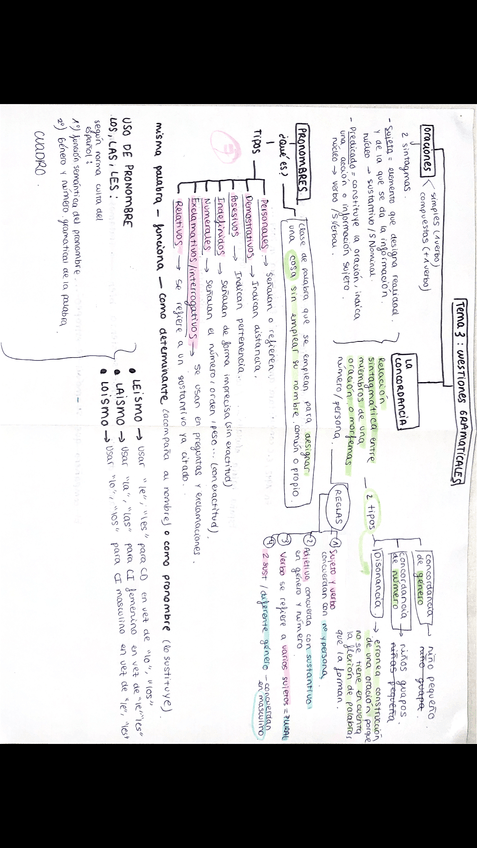 Tema 3: CUESTIONES GRAMATICALES
Oraciones
simples (1 verbo)
compuestas (+1 verbo)
2 sintagmas
- Sujeto = elemento que designa realidad
y de la que se da la información.
núcleo → sustantivo / S Nominal.
- Predicado = constituye la oración, indica
una acción o información sujeto.
núcleo → verbo / S Verbal.
LA CONCORDANCIA
Relación
sintagmática entre
miembros de una
oración o morfemas
número / persona.
2 tipos
concordancia de género → niño pequeño.
niño guapa.
concordancia de número → niños guapos.
niños pequeña
Disonancia → erronea construcción
de una oración porque
no se tiene en cuenta
la flexión de palabras
que la forman.
REGLAS
① Sujeto y verbo
concuerdan con nº y persona
② Adjetivo concuerda con sustantivo
en género y número
③ Verbo se refiere a varios sujetos = plural
④ 2 sust / diferente género → concuerdan
en masculino
PRONOMBRES
¿qué es?
clase de palabra que se emplean para designar
una cosa sin emplear su nombre, común o propio.
TIPOS
Personales → señalan o refieren.
Demostrativos → Indican distancia.
Posesivos → Indican pertenencia.
Indefinidos → Señalan de forma imprecisa (sin exactitud)
Numerales → Señalan el número, orden, peso... (con exactitud).
Exclamativos/interrogativos → se usan en preguntas y exclamaciones.
Relativos → se refiere a un sustantivo ya citado.
misma palabra - funciona - como determinante (acompaña al nombre) o como pronombre (lo sustituye).
USO DE PRONOMBRE
LOS, LAS, LES:
según norma culta del
español:
1º) Función semántica del pronombre
2º) Género y número gramatical de la palabra.
CUADRO.
• LEISMO → usar "le", "les" para CD en vez de "lo", "los"
• LAISMO → usar "la", "las" para CI femenino en vez de "le" "les"
• LOISMO → usar "lo", "los" para CI masculino en vez de "le", "les"